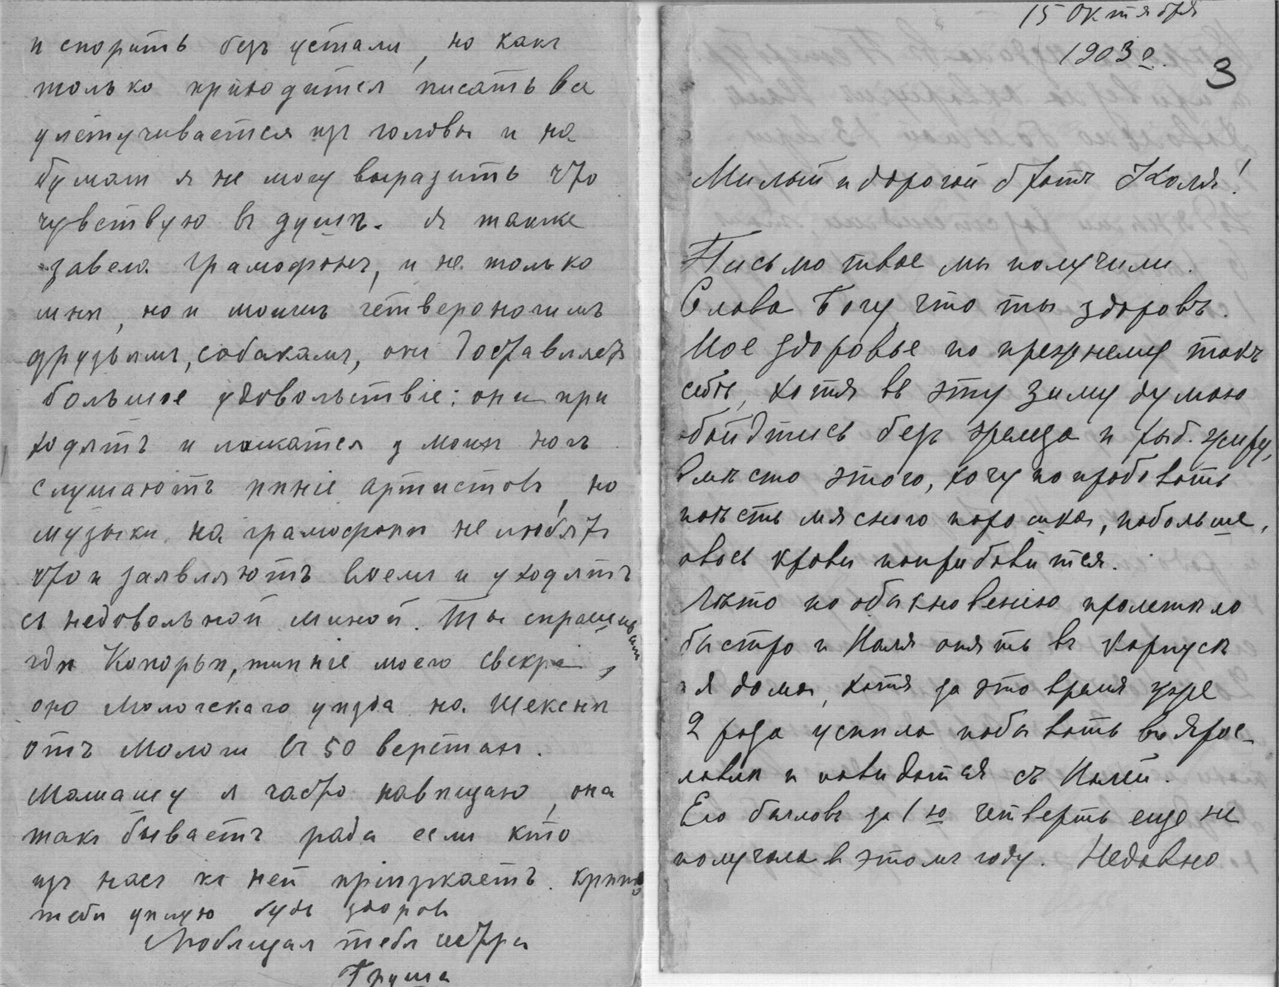 15 Октября
1903 г.
3
Милый и дорогой братъ Коля!
Письмо твое мы получили.
Слава Богу что ты здоровъ.
Мое здоровье по прежнему такъ
себѣ, хотя въ эту зиму думаю
обойдтись безъ и рыб. жиру,
вмѣсто этого, хочу попробовать
поѣсть мяснаго порошка, побольше,
авось крови поприбавится.
Лѣто по обыкновенію пролетѣло
быстро и Коля опять въ Корпусѣ
и я дома, хотя за это время уже
2 раза успѣла побывать въ Ярос-
лавлѣ и повидаться съ Колей.
Его балловъ за 1ю четверть еще не
получала въ этомъ году. Недавно
и спорить безъ устали, но какъ
только приходится писать все
улетучивается изъ головы и на
бумагѣ я не могу выразить что
чувствую въ душѣ. Я также
завела грамофонъ, и не только
мнѣ, но и моимъ четвероногимъ
друзьямъ, собакамъ, онъ доставляетъ
большое удовольствіе: они при
ходятъ и ложатся у моихъ ногъ
слушаютъ пѣніе артистовъ, но
музыки на грамофонѣ не любятъ
что и заявляютъ воемъ и уходятъ
съ недовольной миной. Ты спрашиваешь
гдѣ Копорье, имѣніе моего свекра,
оно Мологскаго уѣзда на Шекснѣ
отъ Мологи въ 50 верстахъ.
Мамашу я часто навѣщаю, она
такъ бываетъ рада если кто
изъ насъ къ ней пріѣзжаетъ. Крѣпко
тебя цѣлую будь здоровъ
Любящая тебя сестра
Груша